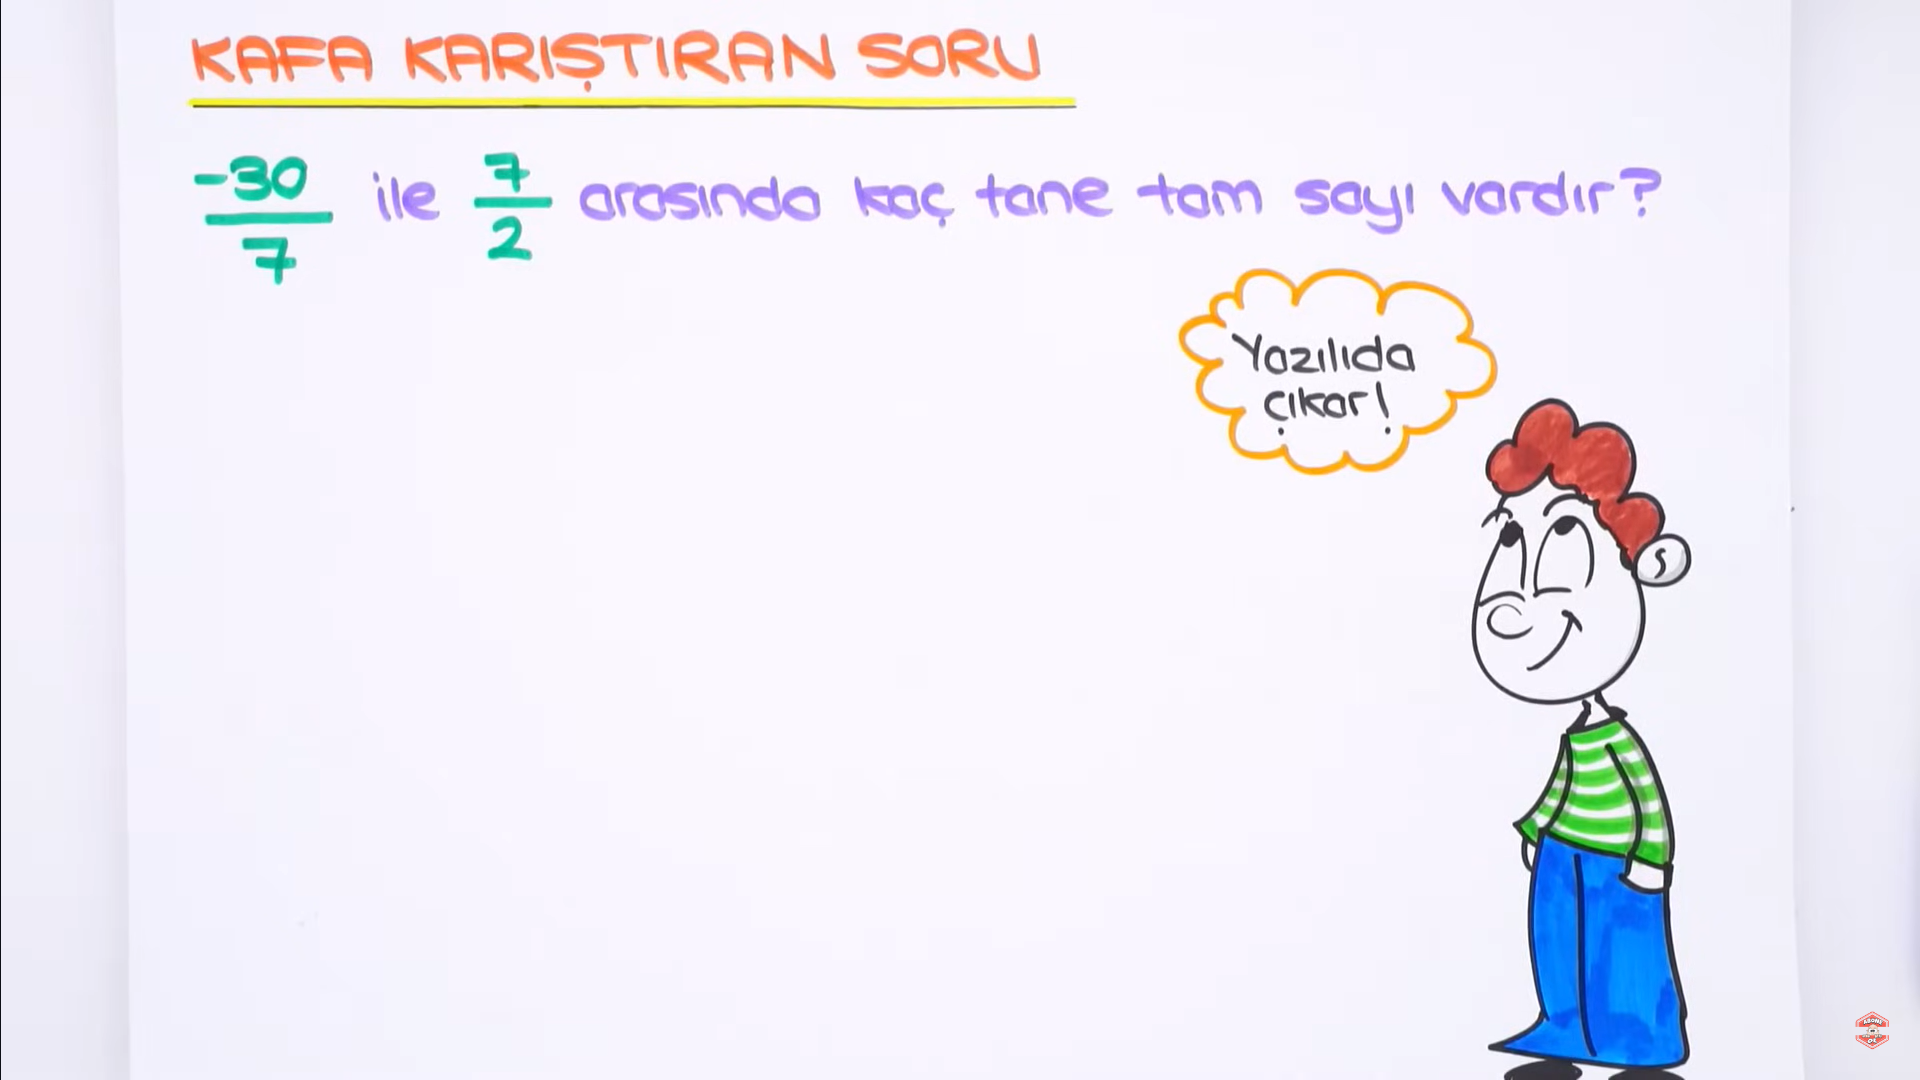 KAFA KARIŞTIRAN SORU
-30/7 ile 7/2 arasında kaç tane tam sayı vardır?
Yazılıda
çıkar!